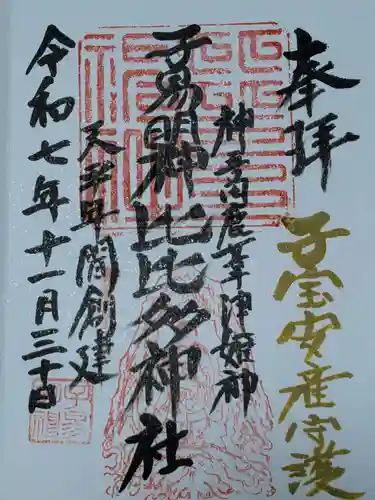 奉拝
子宝安産守護
神吾田鹿葦津姫神
子易明神比比多神社
天平年間創建
令和七年十一月三十日